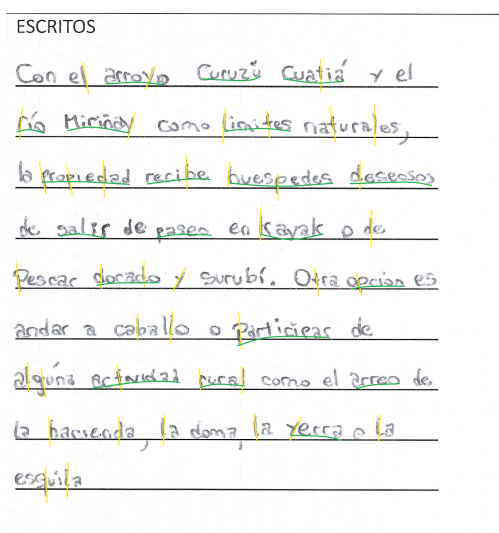 ESCRITOS
Con el arroyo Curuzú Cuatiá y el
río Miriñay como limites naturales,
la propiedad recibe huespedes deseosos
de salir de paseo en kayak o de
Pescar dorado y surubí. Otra opcion es
andar a caballo o participar de
alguna actividad rural como el arreo de
la hacienda, la doma, la yerra o la
esquila